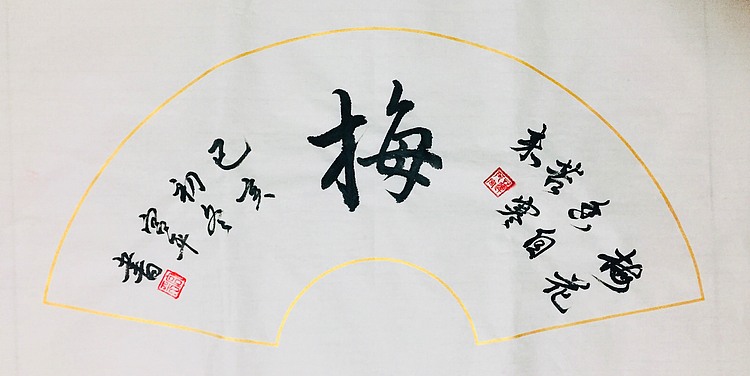 梅花
香自
苦寒
来
梅
己亥
初冬
平
書